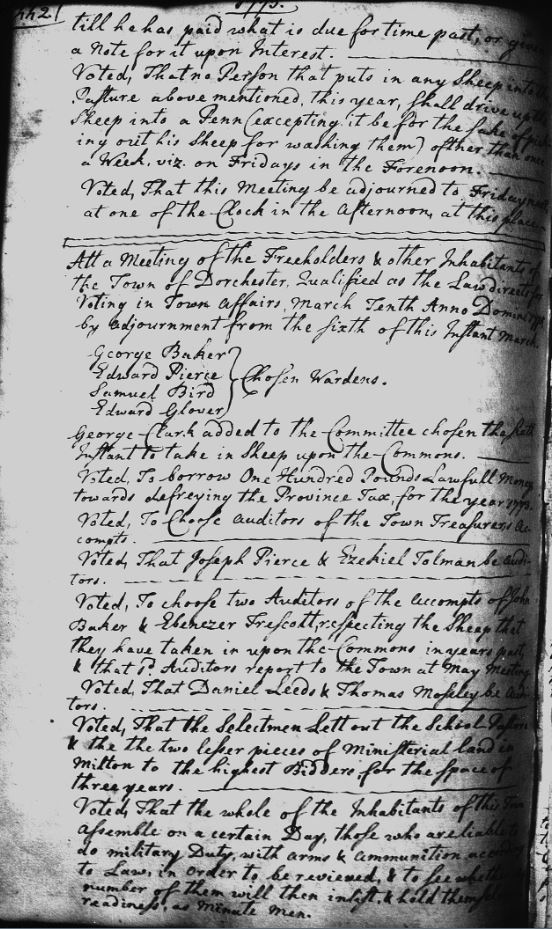 442
1775.
till he has paid what is due for time past, or given
a Note for it upon Interest.
Voted, That no Person that puts in any Sheep into the
Pasture above mentioned, this year, shall drive up the
Sheep into a Penn (excepting it be for the sake of
ing out his Sheep for washing them) ofther than once
a Week. viz. on Fridays in the Forenoon.
Voted, That this Meeting be adjourned to Friday next
at one of the Clock in the Afternoon, at this place.
Att a Meeting of the Freeholders & other Inhabitants of
the Town of Dorchester, Qualified as the Law directs for
Voting in Town Affairs, March Tenth Anno Domini 1775
by Adjournment from the sixth of this Instant March.
George Baker
Edward Pierce
Samuel Bird
Edward Glover
Chosen Wardens.
George Clark added to the Committee chosen the sixth
Instant to take in Sheep upon the Commons.
Voted, To borrow One Hundred Pounds Lawfull Money
towards defreying the Province Tax, for the year 1773.
Voted, To Choose Auditors of the Town Treasurers Ac-
compts.
Voted, That Joseph Pierce & Ezekiel Tolman be Audi-
tors.
Voted, To choose two Auditors of the Accompts of John
Baker & Ebenezer Trescott, respecting the Sheep that
they have taken in upon the Commons in years past,
& that sd. Auditors report to the Town at May Meeting
Voted, That Daniel Leeds & Thomas Moseley be Audi-
tors.
Voted, That the Selectmen Lett out the School Pasture
& the the two lesser pieces of Ministerial land in
Milton to the highest Bidders for the space of
three years.
Voted, That the whole of the Inhabitants of this Town
assemble on a certain Day, those who are liable to
do military Duty, with arms & ammunition according
to Law, in order to be reviewed, & to see whether
number of them will then inlist, & hold themselves
readiness, as Minute Men.